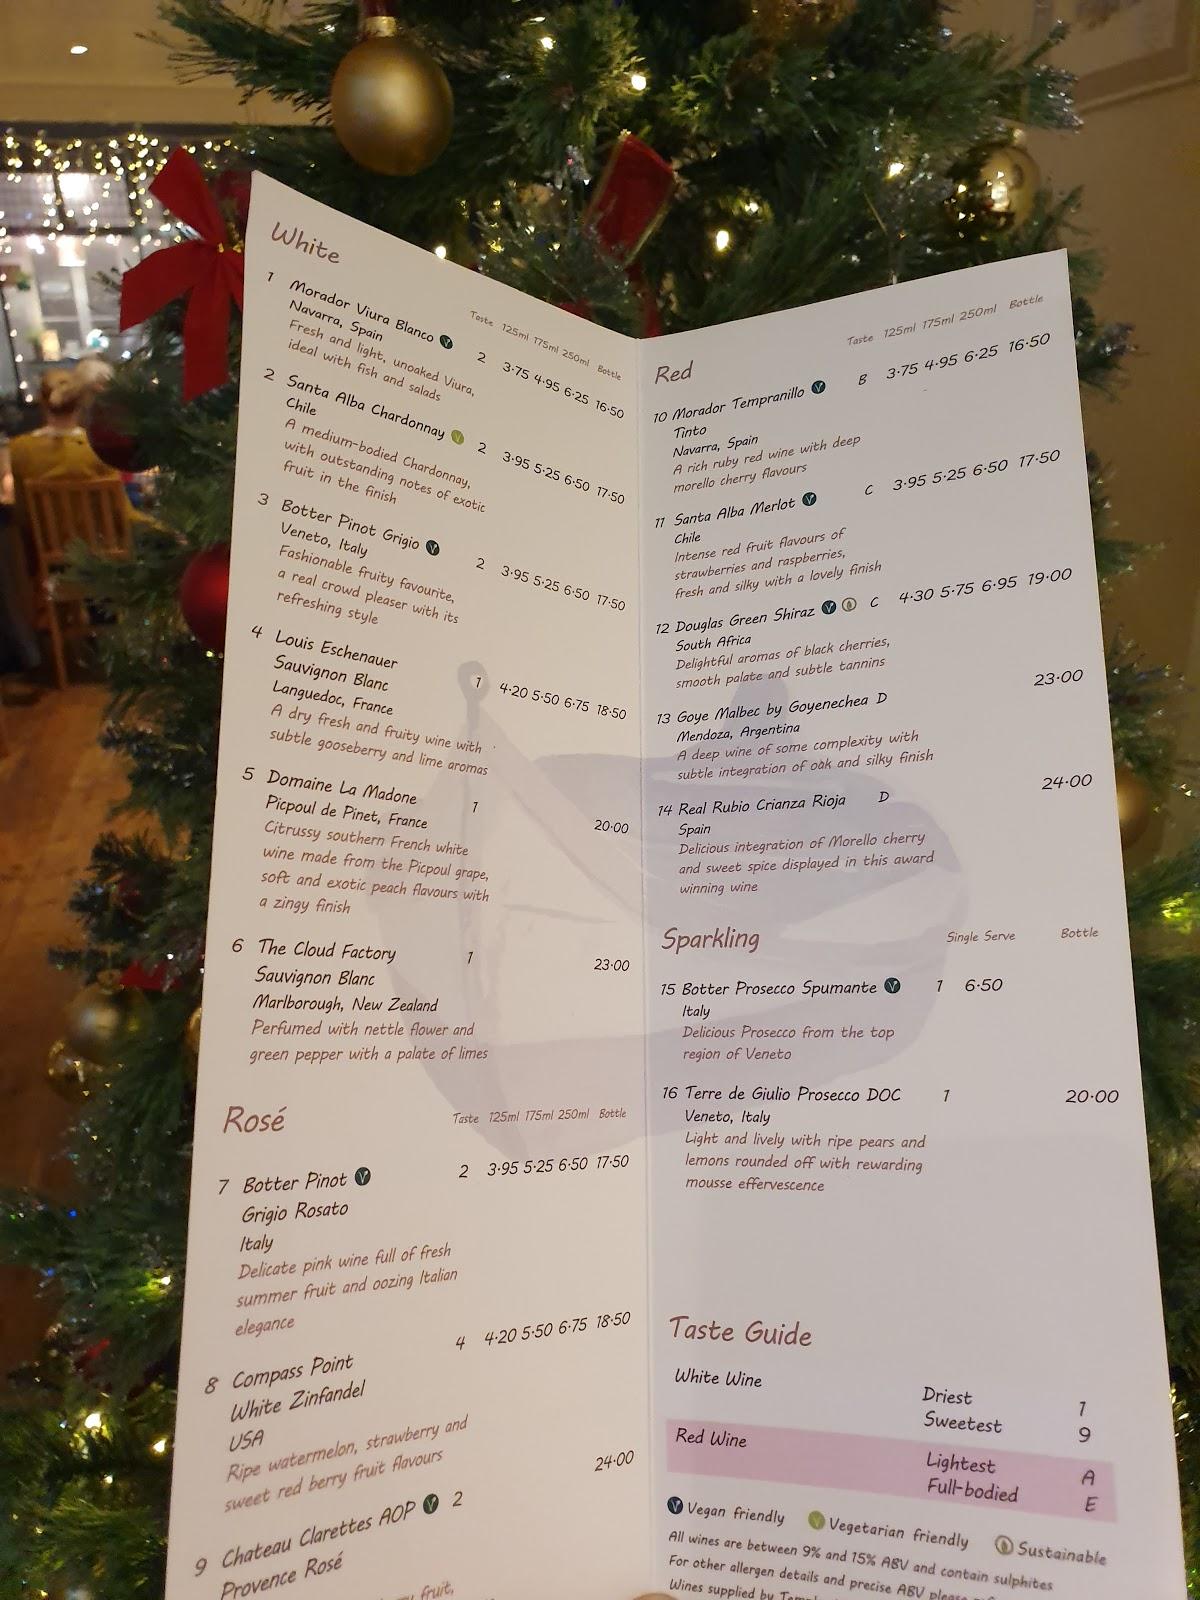 White
Taste 125ml 175ml 250ml Bottle
1 Morador Viura Blanco V 2 3·75 4·95 6·25 16·50
Navarra, Spain
Fresh and light, unoaked Viura,
ideal with fish and salads
2 Santa Alba Chardonnay V 2 3·95 5·25 6·50 17·50
Chile
A medium-bodied Chardonnay,
with outstanding notes of exotic
fruit in the finish
3 Botter Pinot Grigio V 2 3·95 5·25 6·50 17·50
Veneto, Italy
Fashionable fruity favourite,
a real crowd pleaser with its
refreshing style
4 Louis Eschenauer
Sauvignon Blanc 1 4·20 5·50 6·75 18·50
Languedoc, France
A dry fresh and fruity wine with
subtle gooseberry and lime aromas
5 Domaine La Madone 1 20·00
Picpoul de Pinet, France
Citrussy southern French white
wine made from the Picpoul grape,
soft and exotic peach flavours with
a zingy finish
6 The Cloud Factory 1 23·00
Sauvignon Blanc
Marlborough, New Zealand
Perfumed with nettle flower and
green pepper with a palate of limes
Rosé
Taste 125ml 175ml 250ml Bottle
7 Botter Pinot V 2 3·95 5·25 6·50 17·50
Grigio Rosato
Italy
Delicate pink wine full of fresh
summer fruit and oozing Italian
elegance
8 Compass Point 4 4·20 5·50 6·75 18·50
White Zinfandel
USA
Ripe watermelon, strawberry and
sweet red berry fruit flavours
9 Chateau Clarettes AOP V 2 24·00
Provence Rosé
fruit,
Red
Taste 125ml 175ml 250ml Bottle
10 Morador Tempranillo V B 3·75 4·95 6·25 16·50
Tinto
Navarra, Spain
A rich ruby red wine with deep
morello cherry flavours
11 Santa Alba Merlot V C 3·95 5·25 6·50 17·50
Chile
Intense red fruit flavours of
strawberries and raspberries,
fresh and silky with a lovely finish
12 Douglas Green Shiraz V C 4·30 5·75 6·95 19·00
South Africa
Delightful aromas of black cherries,
smooth palate and subtle tannins
13 Goye Malbec by Goyenechea D 23·00
Mendoza, Argentina
A deep wine of some complexity with
subtle integration of oak and silky finish
14 Real Rubio Crianza Rioja D 24·00
Spain
Delicious integration of Morello cherry
and sweet spice displayed in this award
winning wine
Sparkling
Single Serve Bottle
15 Botter Prosecco Spumante V 1 6·50
Italy
Delicious Prosecco from the top
region of Veneto
16 Terre de Giulio Prosecco DOC 1 20·00
Veneto, Italy
Light and lively with ripe pears and
lemons rounded off with rewarding
mousse effervescence
Taste Guide
White Wine
Driest 1
Sweetest 9
Red Wine
Lightest A
Full-bodied E
V Vegan friendly V Vegetarian friendly Sustainable
All wines are between 9% and 15% ABV and contain sulphites
For other allergen details and precise ABV please
Wines supplied by